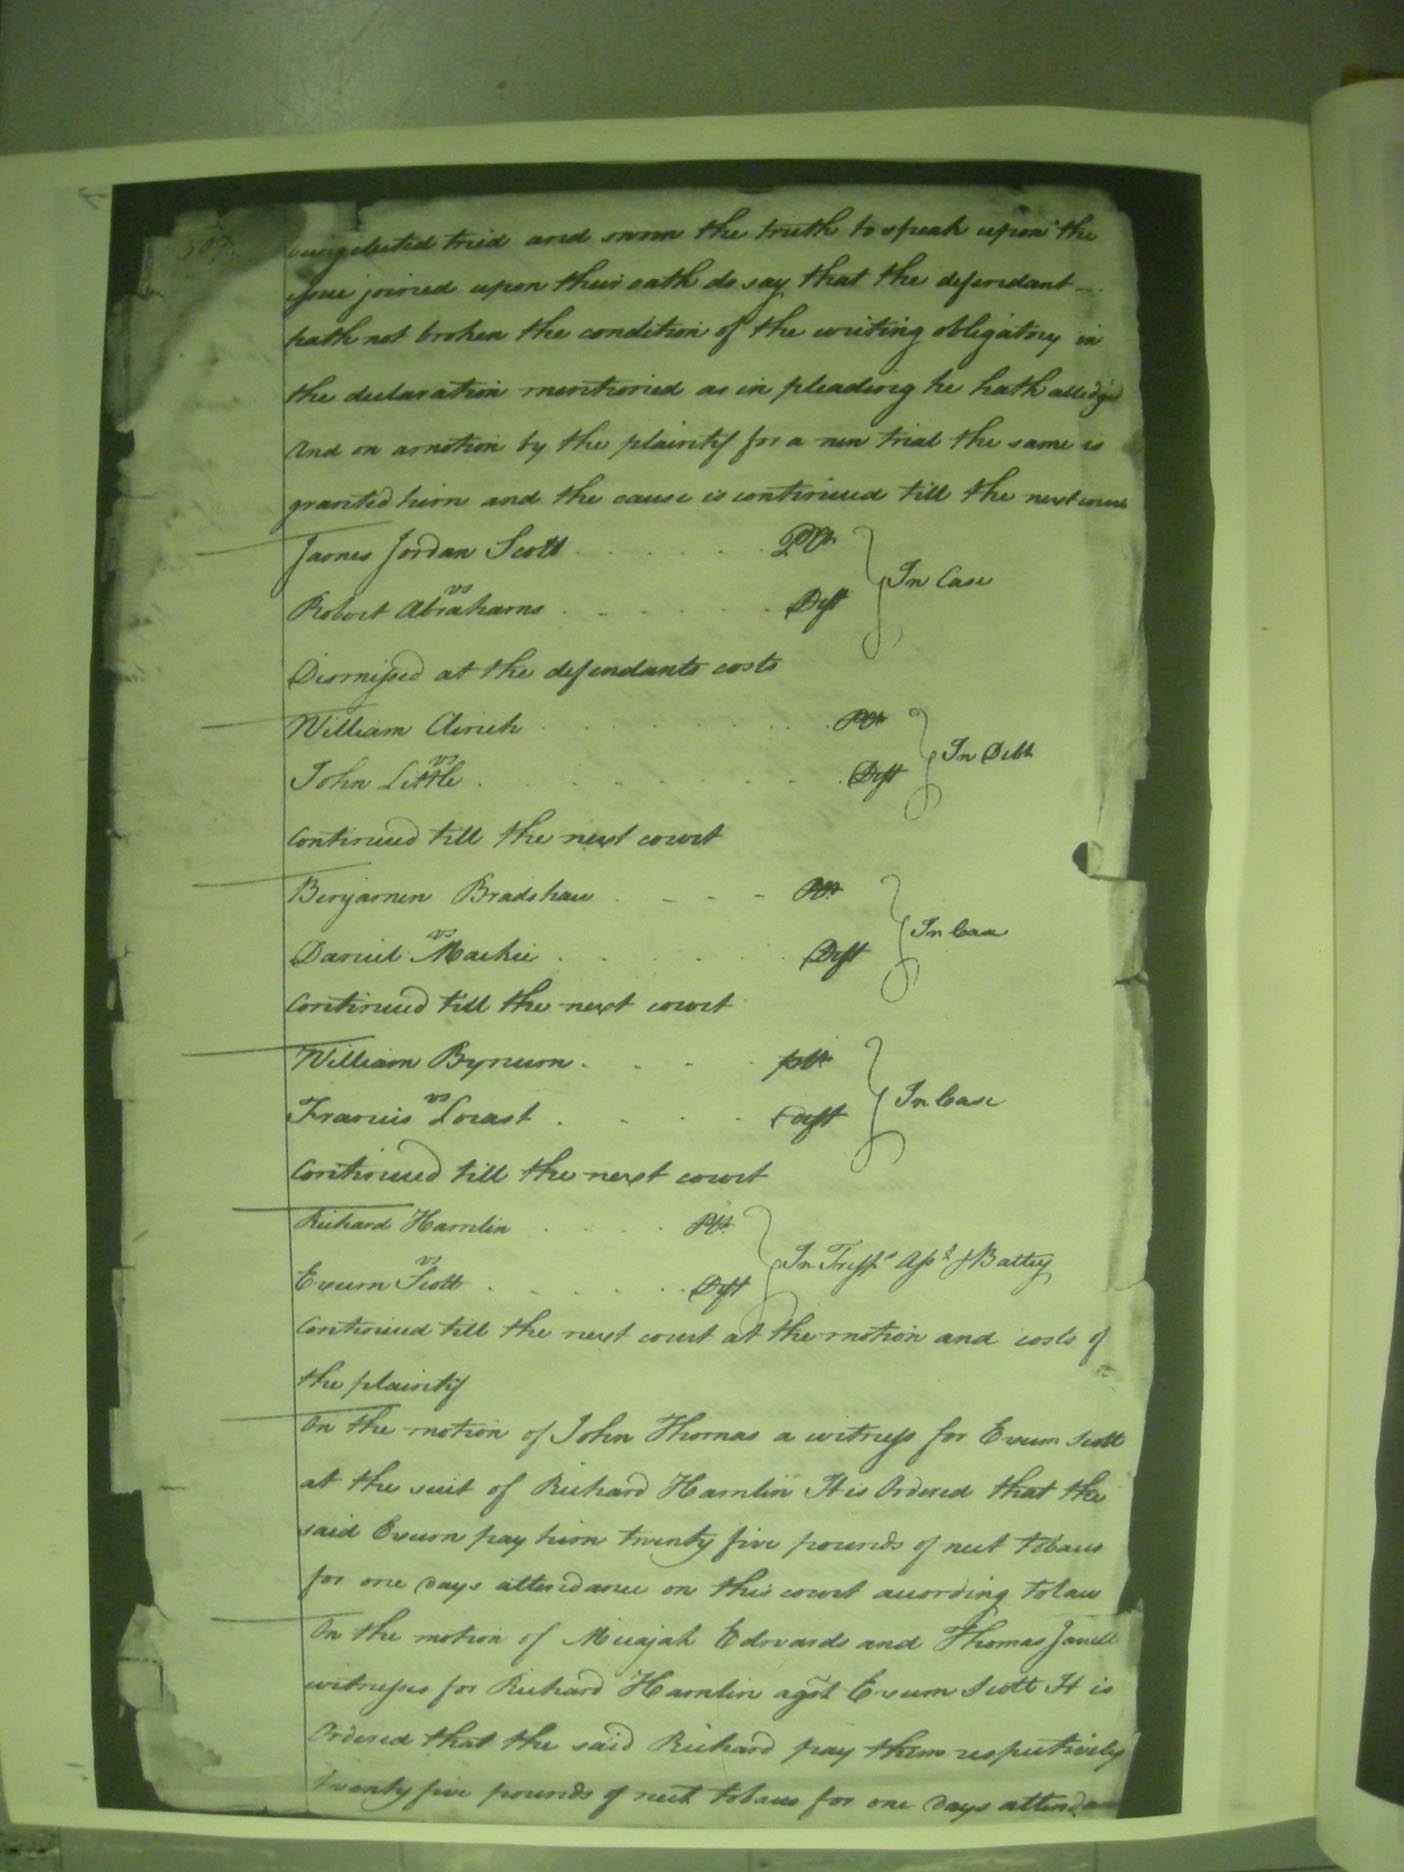 507
being elected tried and sworn the truth to speak upon the
issue joined upon their oath do say that the defendant
hath not broken the condition of the writing obligatory in
the declaration mentioned as in pleading he hath alledged
And on a motion by the plaintif for a new trial the same is
granted him and the cause is continued till the next court
James Jordan Scott . . . . . . Plt
vs
Robert Abrahams . . . . . . Deft
In Case
Dismissed at the defendants costs
William Clinch . . . . . . . Plt
vs
John Little . . . . . . . Deft
In Debt
Continued till the next court
Benjamen Bradshaw . - - - Plt
vs
Daniel Mackie . . . . . Deft
In Case
Continued till the next court
William Bynum . . . . plt
vs
Francis Locast . . . . Deft
In Case
Continued till the next court
Richard Hamlin . . . . Plt
vs
Exum Scott . . . . . Deft
In Tress.s Ass.t & Battey
Continued till the next court at the motion and costs of
the plaintif
On the motion of John Thomas a witness for Exum Scott
at the suit of Richard Hamlin It is Ordered that the
said Exum pay him twenty five pounds of neet tobacco
for one days attendance on this court according to law
On the motion of Micajah Edwards and Thomas Jarrell
witnesses for Richard Hamlin agst Exum Scott It is
Ordered that the said Richard pay them respectively
twenty five pounds of neet tobacco for one days attendan